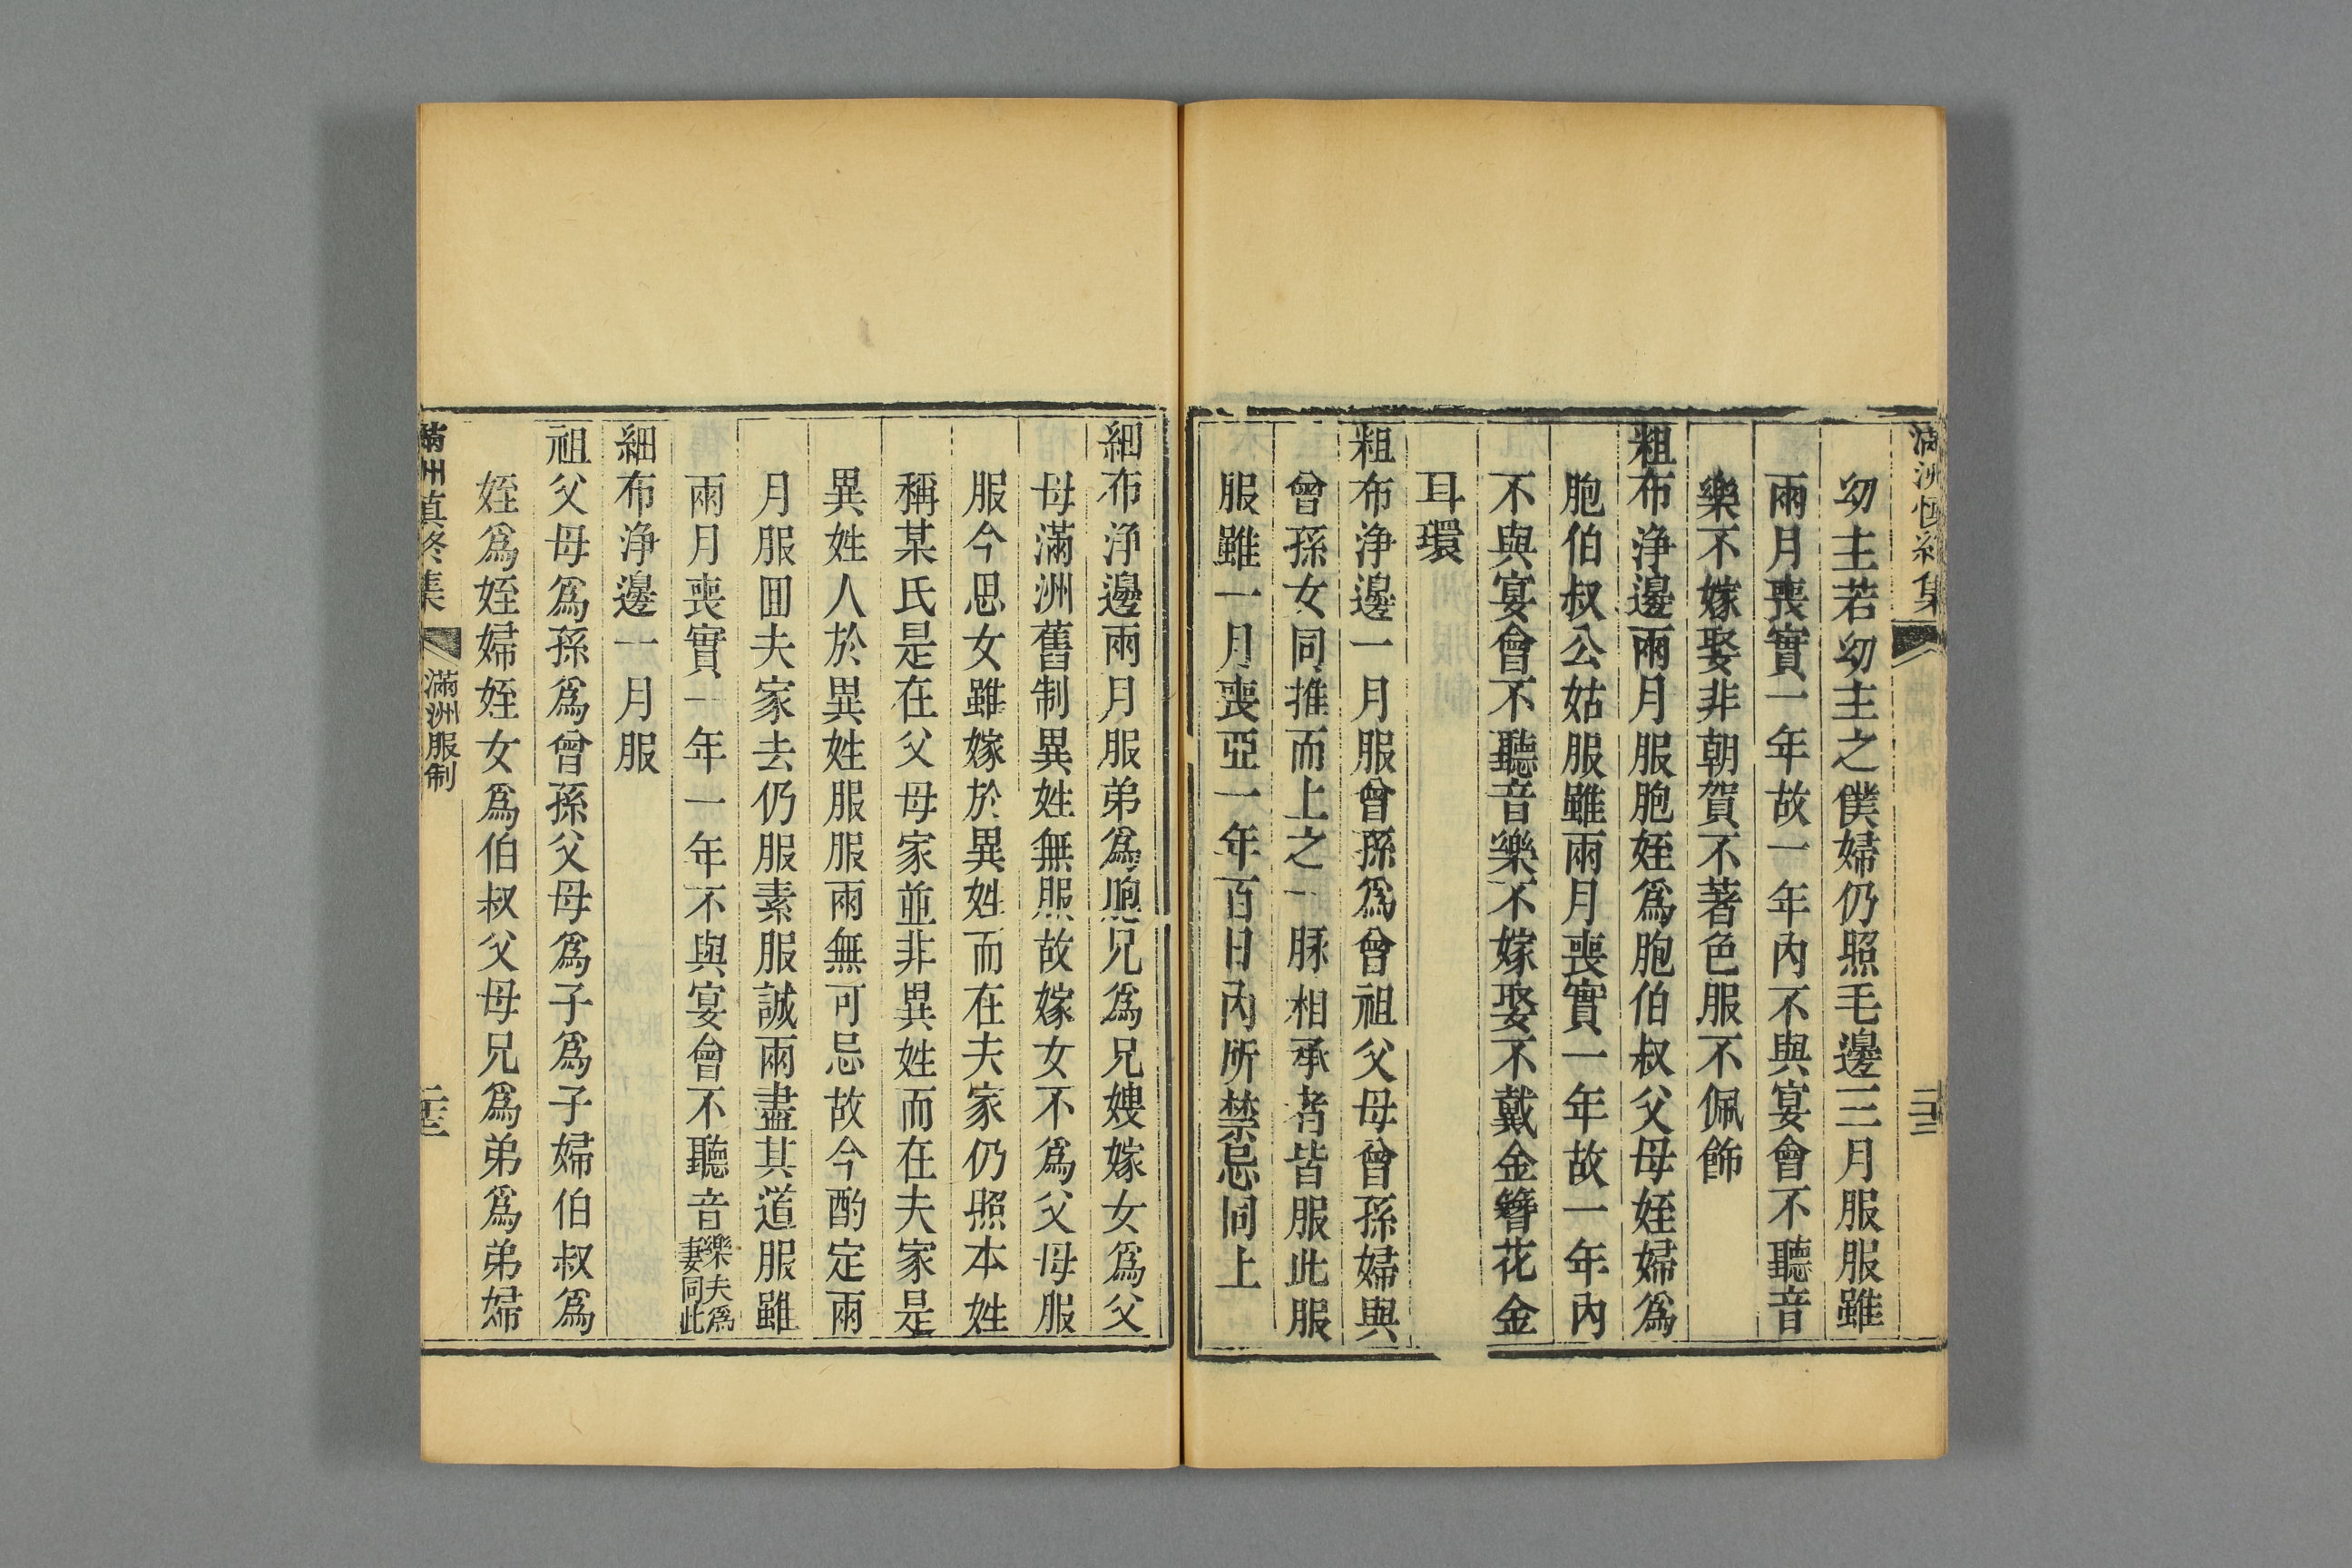 滿洲慎終集
二十二
幼主若幼主之僕婦仍照毛邊三月服服雖
兩月喪實一年故一年內不與宴會不聽音
樂不嫁娶非朝賀不著色服不佩飾
粗布淨邊兩月服胞姪爲胞伯叔父母姪婦爲
胞伯叔公姑服雖兩月喪實一年故一年內
不與宴會不聽音樂不嫁娶不戴金簪花金
耳環
粗布淨邊一月服曾孫爲曾祖父母曾孫婦與
曾孫女同推而上之一脉相承者皆服此服
服雖一月喪亞一年百日內所禁忌同上
細布淨邊兩月服弟爲胞兄爲兄嫂嫁女爲父
母滿洲舊制異姓無服故嫁女不爲父母服
服今思女雖嫁於異姓而在夫家仍照本姓
稱某氏是在父母家並非異姓而在夫家是
異姓人於異姓服服兩無可忌故今酌定兩
月服囬夫家去仍服素服誠兩盡其道服雖
兩月喪實一年一年不與宴會不聽音樂夫爲妻同此
細布淨邊一月服
祖父母爲孫爲曾孫父母爲子爲子婦伯叔爲
姪爲姪婦姪女爲伯叔父母兄爲弟爲弟婦
滿洲慎終集
滿洲服制
二十三